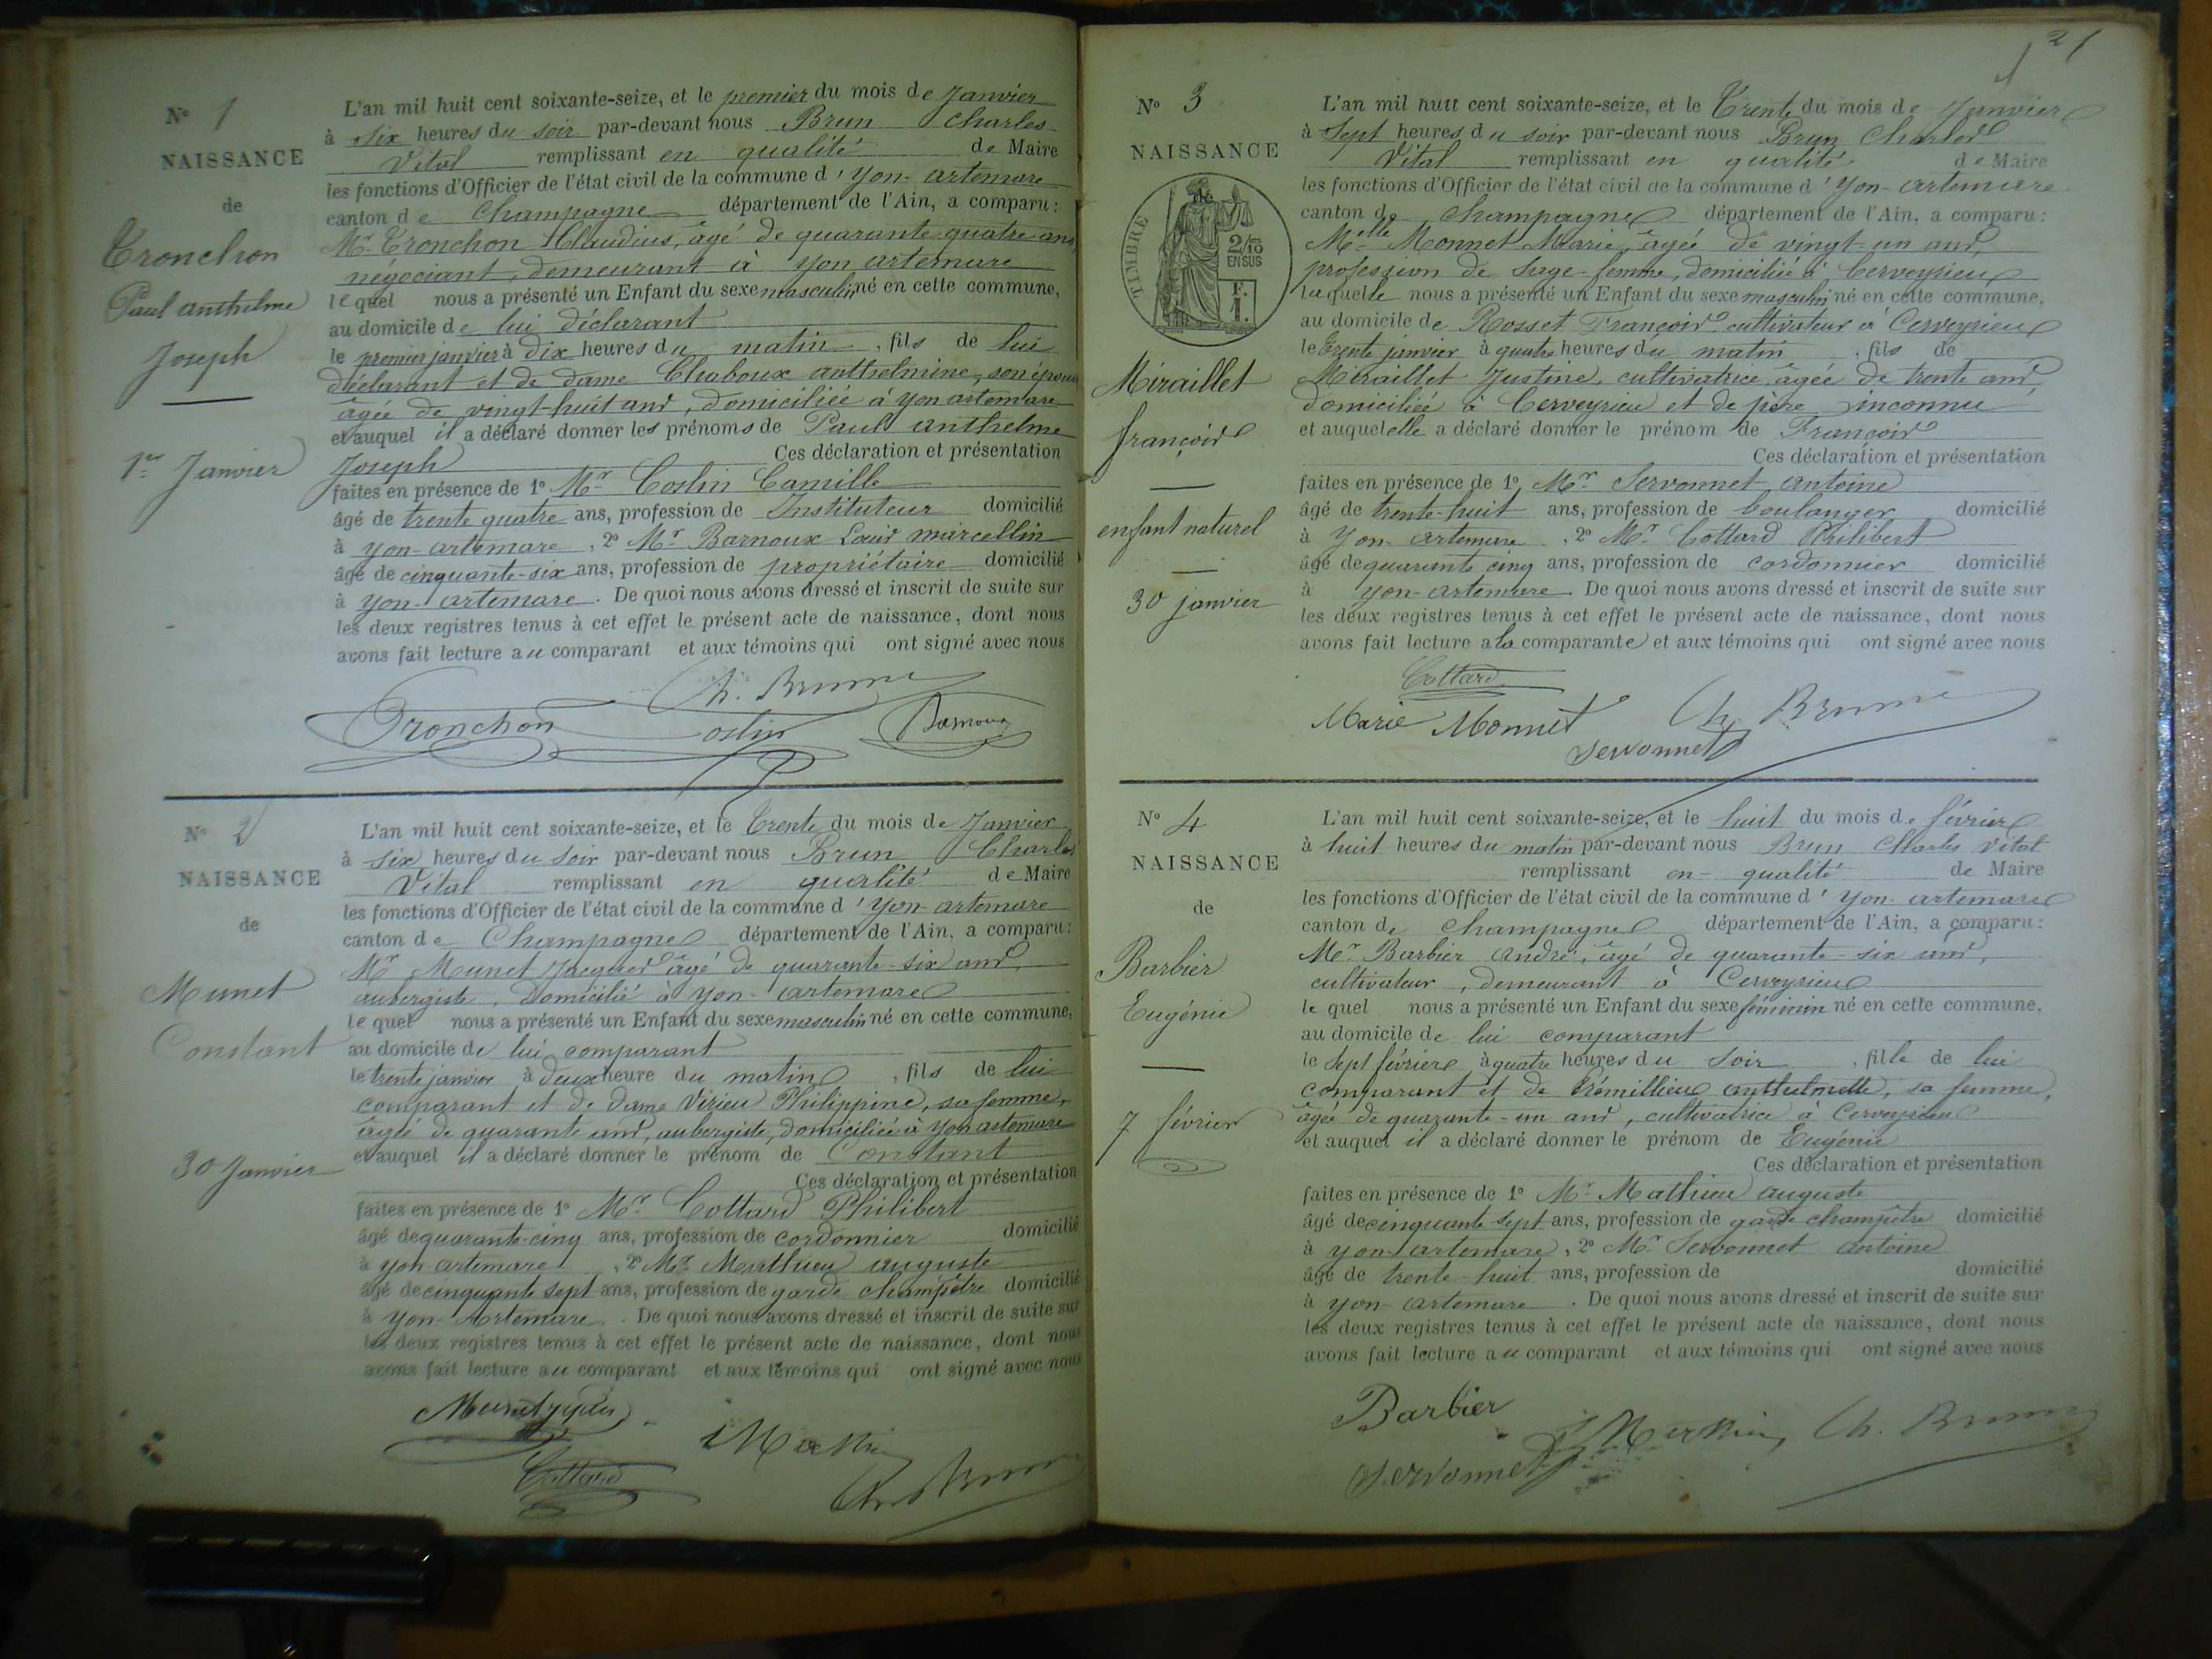 Nº 1
NAISSANCE
de
Tronchon
Paul anthelme
Joseph
1er Janvier
L'an mil huit cent soixante-seize, et le premier du mois de Janvier
à six heures du soir par-devant nous Brun Charles
Vital remplissant en qualité de Maire
les fonctions d'Officier de l'état civil de la commune d'yon-artemare
canton de Champagne département de l'Ain, a comparu:
Mr Tronchon Claudius, âgé de quarante quatre ans
négociant, demeurant à yon artemare
lequel nous a présenté un Enfant du sexe masculin né en cette commune,
au domicile de lui déclarant
le premier janvier à dix heures du matin, fils de lui
déclarant et de dame Chaboux anthelmine, son épouse
âgée de vingt-huit ans, domiciliée à yon artemare
et auquel il a déclaré donner les prénoms de Paul anthelme
Joseph Ces déclaration et présentation
faites en présence de 1º Mr Coslin Camille
âgé de trente quatre ans, profession de Instituteur domicilié
à yon-artemare, 2º Mr Barnoux Louis marcellin
âgé de cinquante-six ans, profession de propriétaire domicilié
à yon-artemare. De quoi nous avons dressé et inscrit de suite sur
les deux registres tenus à cet effet le présent acte de naissance, dont nous
avons fait lecture au comparant et aux témoins qui ont signé avec nous
Ch. Brun
Tronchon Coslin Barnoux
Nº 2
NAISSANCE
de
Munet
Constant
30 Janvier
L'an mil huit cent soixante-seize, et le Trente du mois de Janvier
à six heures du soir par-devant nous Brun Charles
Vital remplissant en qualité de Maire
les fonctions d'Officier de l'état civil de la commune d'yon-artemare
canton de Champagne département de l'Ain, a comparu:
Mr Munet Jacques âgé de quarante-six ans,
aubergiste, domicilié à yon-artemare
lequel nous a présenté un Enfant du sexe masculin né en cette commune,
au domicile de lui comparant
le trente janvier à deux heure du matin, fils de lui
comparant et de dame Virieu Philippine, sa femme,
âgée de quarante ans, aubergiste, domiciliée à yon artemare
et auquel il a déclaré donner le prénom de Constant
Ces déclaration et présentation
faites en présence de 1º Mr Cottard Philibert
âgé de quarante-cinq ans, profession de cordonnier domicilié
à yon-artemare, 2º Mr Mathieu auguste
âgé de cinquante sept ans, profession de garde champêtre domicilié
à yon-Artemare. De quoi nous avons dressé et inscrit de suite sur
les deux registres tenus à cet effet le présent acte de naissance, dont nous
avons fait lecture au comparant et aux témoins qui ont signé avec nous
Cottard
Ch. Brun
21
Nº 3
NAISSANCE
TIMBRE
2/10
EN SUS
F.
1.
Miraillet
françois
enfant naturel
30 janvier
L'an mil huit cent soixante-seize, et le Trente du mois de Janvier
à Sept heures du soir par-devant nous Brun Charles
Vital remplissant en qualité de Maire
les fonctions d'Officier de l'état civil de la commune d'yon-artemare
canton de Champagne département de l'Ain, a comparu:
Melle Monnet Marie, âgée de vingt-un ans,
profession de Sage-femme, domiciliée à Cerveyrieu
laquelle nous a présenté un Enfant du sexe masculin né en cette commune,
au domicile de Rosset François cultivateur à Cerveyrieu
le trente janvier à quatre heures du matin, fils de
Miraillet Justine, cultivatrice, âgée de trente ans
domiciliée à Cerveyrieu et de père inconnu
et auquel elle a déclaré donner le prénom de François
Ces déclaration et présentation
faites en présence de 1º Mr Servonnet antoine
âgé de trente-huit ans, profession de boulanger domicilié
à yon-artemare, 2º Mr Cottard Philibert
âgé de quarante cinq ans, profession de cordonnier domicilié
à yon-artemare. De quoi nous avons dressé et inscrit de suite sur
les deux registres tenus à cet effet le présent acte de naissance, dont nous
avons fait lecture à la comparante et aux témoins qui ont signé avec nous
Cottard
Marie Monnet Ch. Brun
Servonnet
Nº 4
NAISSANCE
de
Barbier
Eugénie
7 février
L'an mil huit cent soixante-seize, et le huit du mois de février
à huit heures du matin par-devant nous Brun Charles Vital
remplissant en qualité de Maire
les fonctions d'Officier de l'état civil de la commune d'yon-artemare
canton de Champagne département de l'Ain, a comparu:
Mr Barbier andré, âgé de quarante-six ans,
cultivateur, demeurant à Cerveyrieu
lequel nous a présenté un Enfant du sexe féminin né en cette commune,
au domicile de lui comparant
le sept février à quatre heures du soir, fille de lui
comparant et de Trémillieu anthelmette, sa femme,
âgée de quarante-un ans, cultivatrice à Cerveyrieu
et auquel il a déclaré donner le prénom de Eugénie
Ces déclaration et présentation
faites en présence de 1º Mr Mathieu auguste
âgé de cinquante sept ans, profession de garde champêtre domicilié
à yon-artemare, 2º Mr Servonnet antoine
âgé de trente-huit ans, profession de domicilié
à yon-artemare. De quoi nous avons dressé et inscrit de suite sur
les deux registres tenus à cet effet le présent acte de naissance, dont nous
avons fait lecture au comparant et aux témoins qui ont signé avec nous
Barbier Ch. Brun
Servonnet